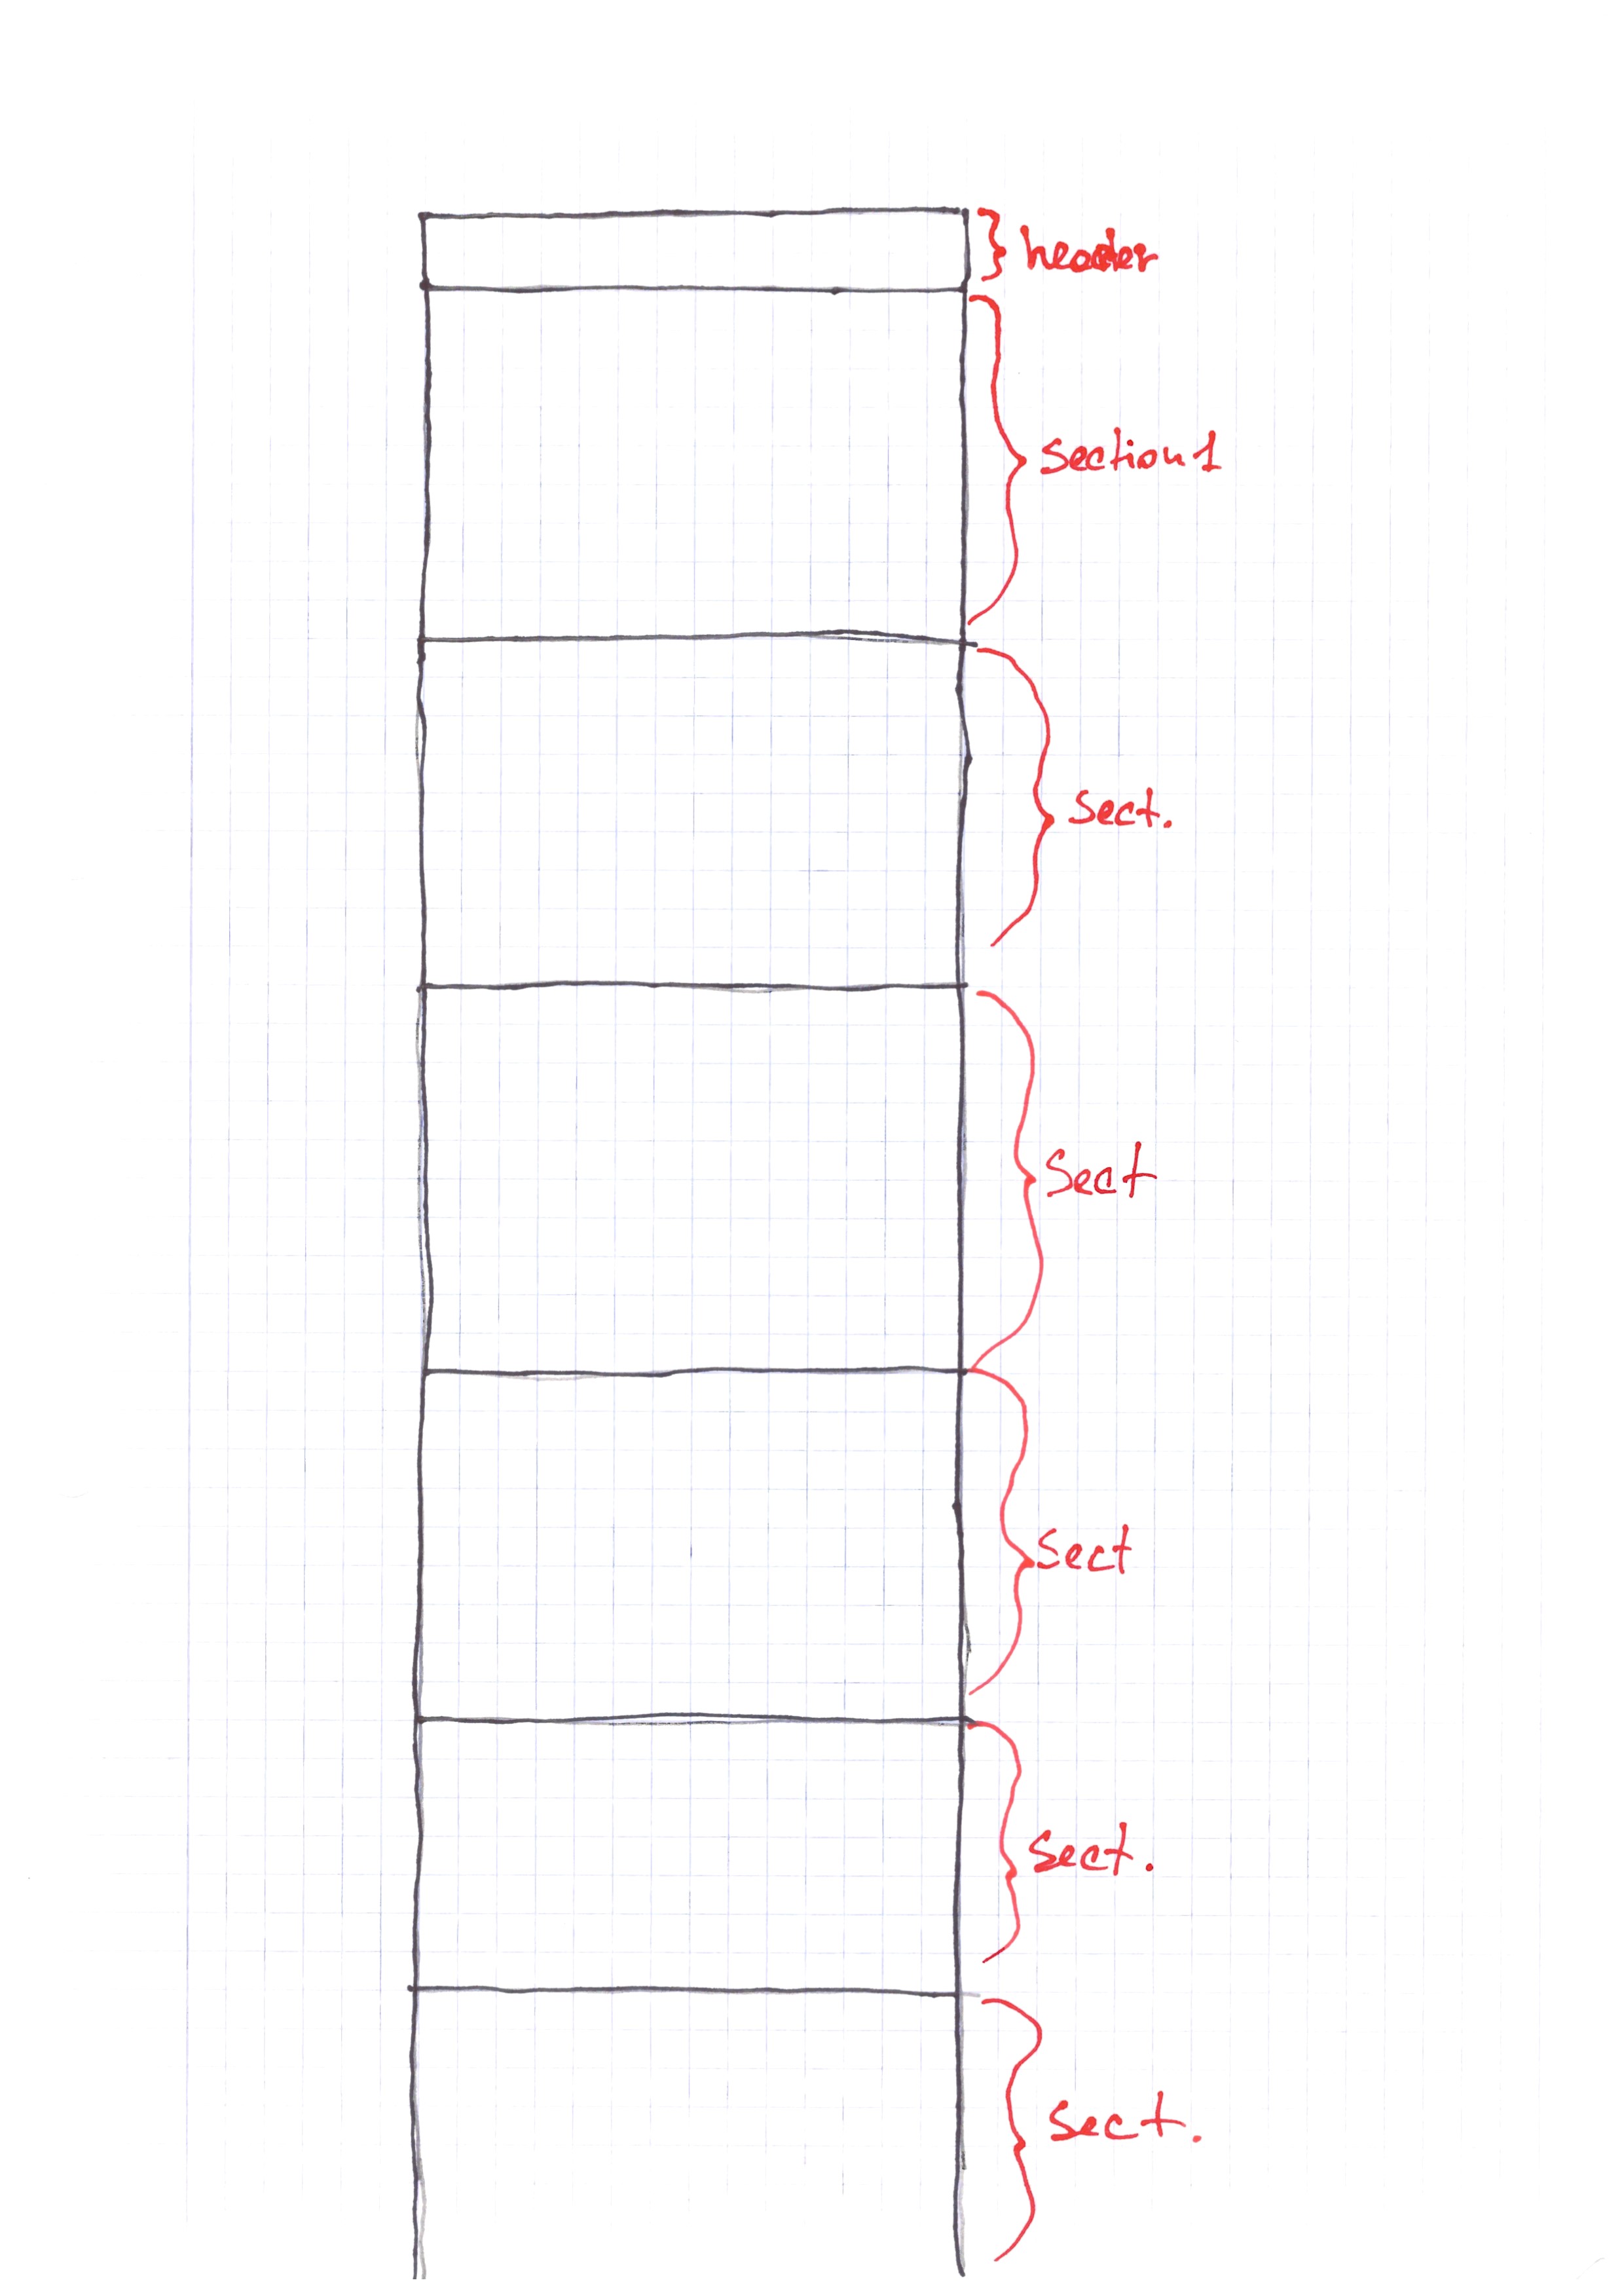 header
section 1
sect.
Sect
Sect
Sect.
Sect.